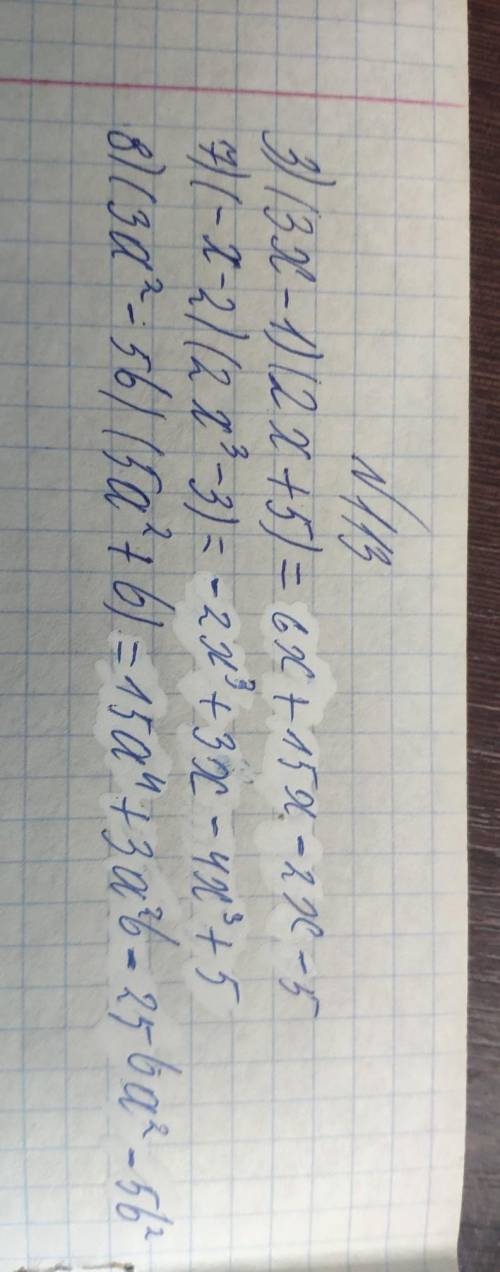 N113
3) (3x-1)(2x+5) = 6x+15x-2x-5
7) (-x-2)(2x³-3) = -2x³+3x-4x³+5
8) (3a²-5b)(5a²+b) = 15a⁴+3a²b-25ba²-5b²